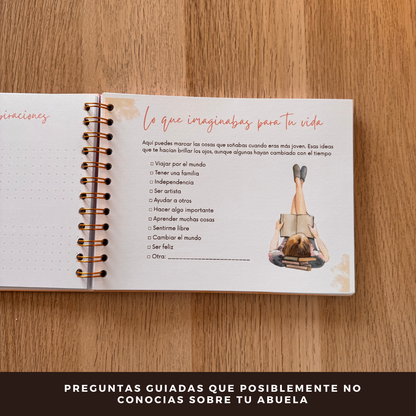 piraciones
Lo que imaginabas para tu vida
Aquí puedes marcar las cosas que soñabas cuando eras más joven. Esas ideas
que te hacían brillar los ojos, aunque algunas hayan cambiado con el tiempo
Viajar por el mundo
Tener una familia
Independencia
Ser artista
Ayudar a otros
Hacer algo importante
Aprender muchas cosas
Sentirme libre
Cambiar el mundo
Ser feliz
Otra:
PREGUNTAS GUIADAS QUE POSIBLEMENTE NO
CONOCIAS SOBRE TU ABUELA